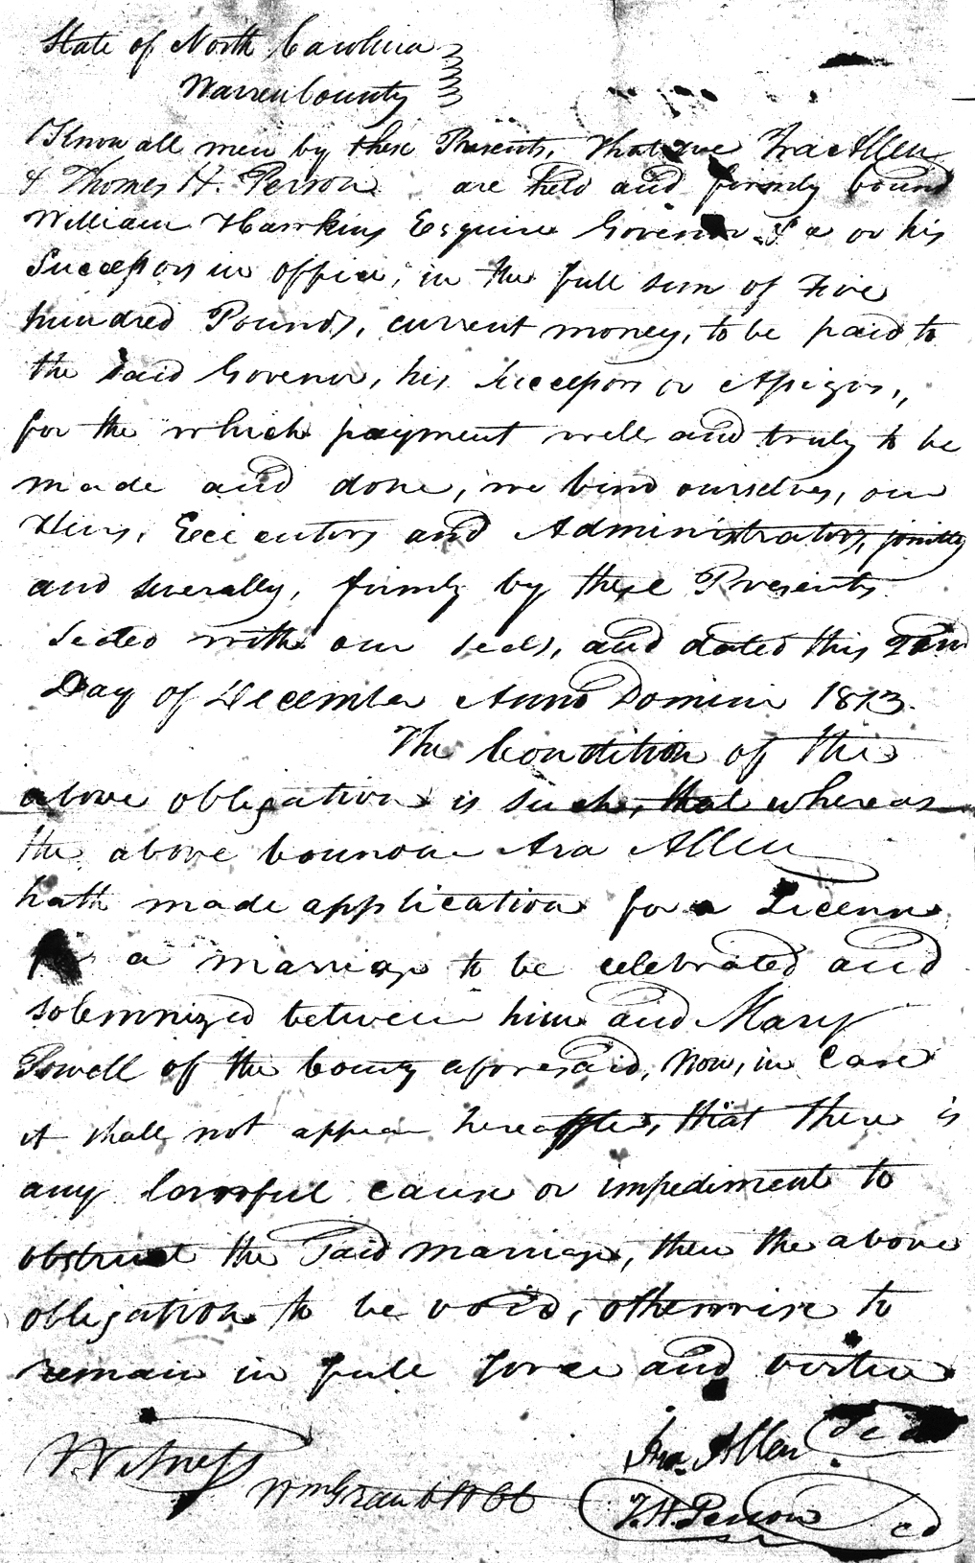 State of North Carolina
Warren County
Know all men by these Presents, that we Ira Allen
& Thomas H. Person are held and firmly bound
William Hawkins Esquire Governor &c or his
Successors in office, in the full sum of Five
hundred Pounds, current money, to be paid to
the said Govenor, his Successors or Assigns,
for the which payment well and truly to be
made and done, we bind ourselves, our
Heirs, Executors and Administrators, jointly
and severally, firmly by these Presents
Sealed with our seals, and dated this
Day of December Anno Domini 1813.
The Condition of the
above obligation is such, that whereas
the above bounden Ira Allen
hath made application for a Licence
for a marriage to be celebrated and
solemnized between him and Mary
Powell of the County aforesaid, Now, in Case
it shall not appear hereafter, that there is
any lawful cause or impediment to
obstruct the said marriage, then the above
obligation to be void, otherwise to
remain in full force and virtue
Witness
Ira Allen Seal
Wm Green
T. H. Person